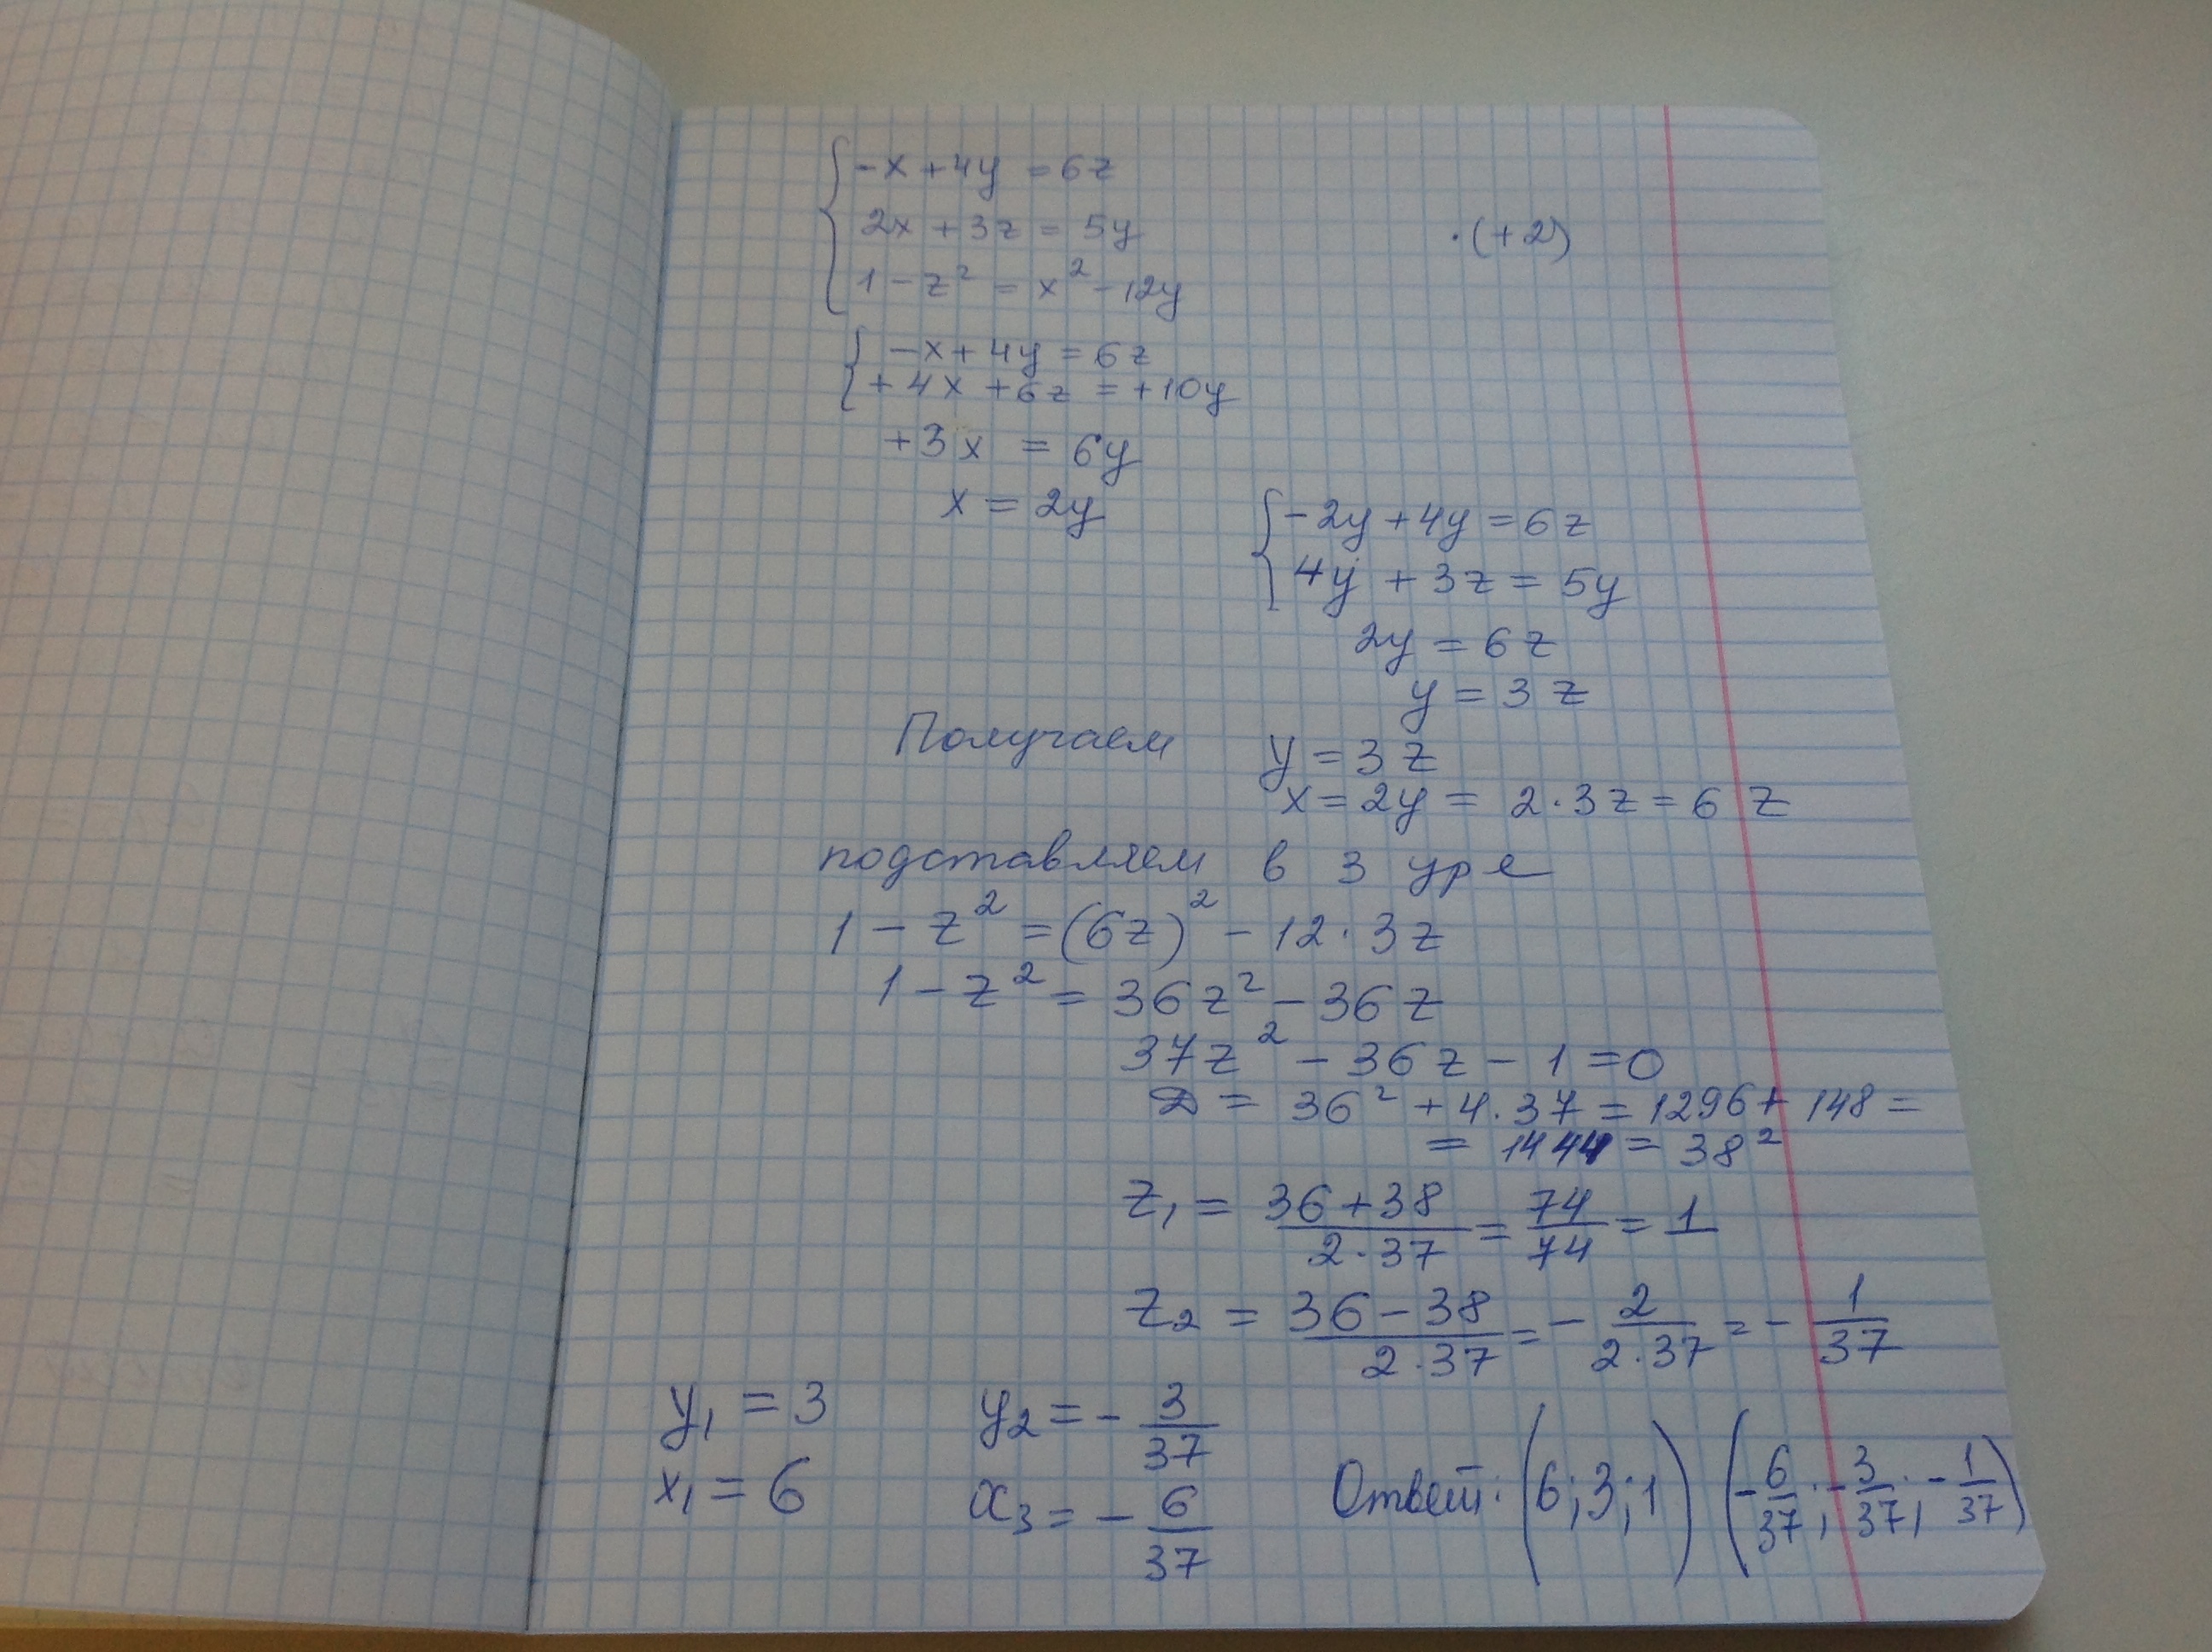 -x + 4y = 6z
2x + 3z = 5y · (+2)
1 - z² = x² - 12y
-x + 4y = 6z
+4x + 6z = +10y
+3x = 6y
x = 2y
-2y + 4y = 6z
4y + 3z = 5y
2y = 6z
y = 3z
Получаем y = 3z
x = 2y = 2·3z = 6z
подставляем в 3 уре
1 - z² = (6z)² - 12·3z
1 - z² = 36z² - 36z
37z² - 36z - 1 = 0
D = 36² + 4·37 = 1296 + 148 =
= 1444 = 38²
z₁ = (36 + 38)/(2·37) = 74/74 = 1
z₂ = (36 - 38)/(2·37) = - 2/(2·37) = - 1/37
y₁ = 3 y₂ = - 3/37
x₁ = 6 x₃ = - 6/37 Ответ: (6; 3; 1) (-6/37; -3/37; -1/37)